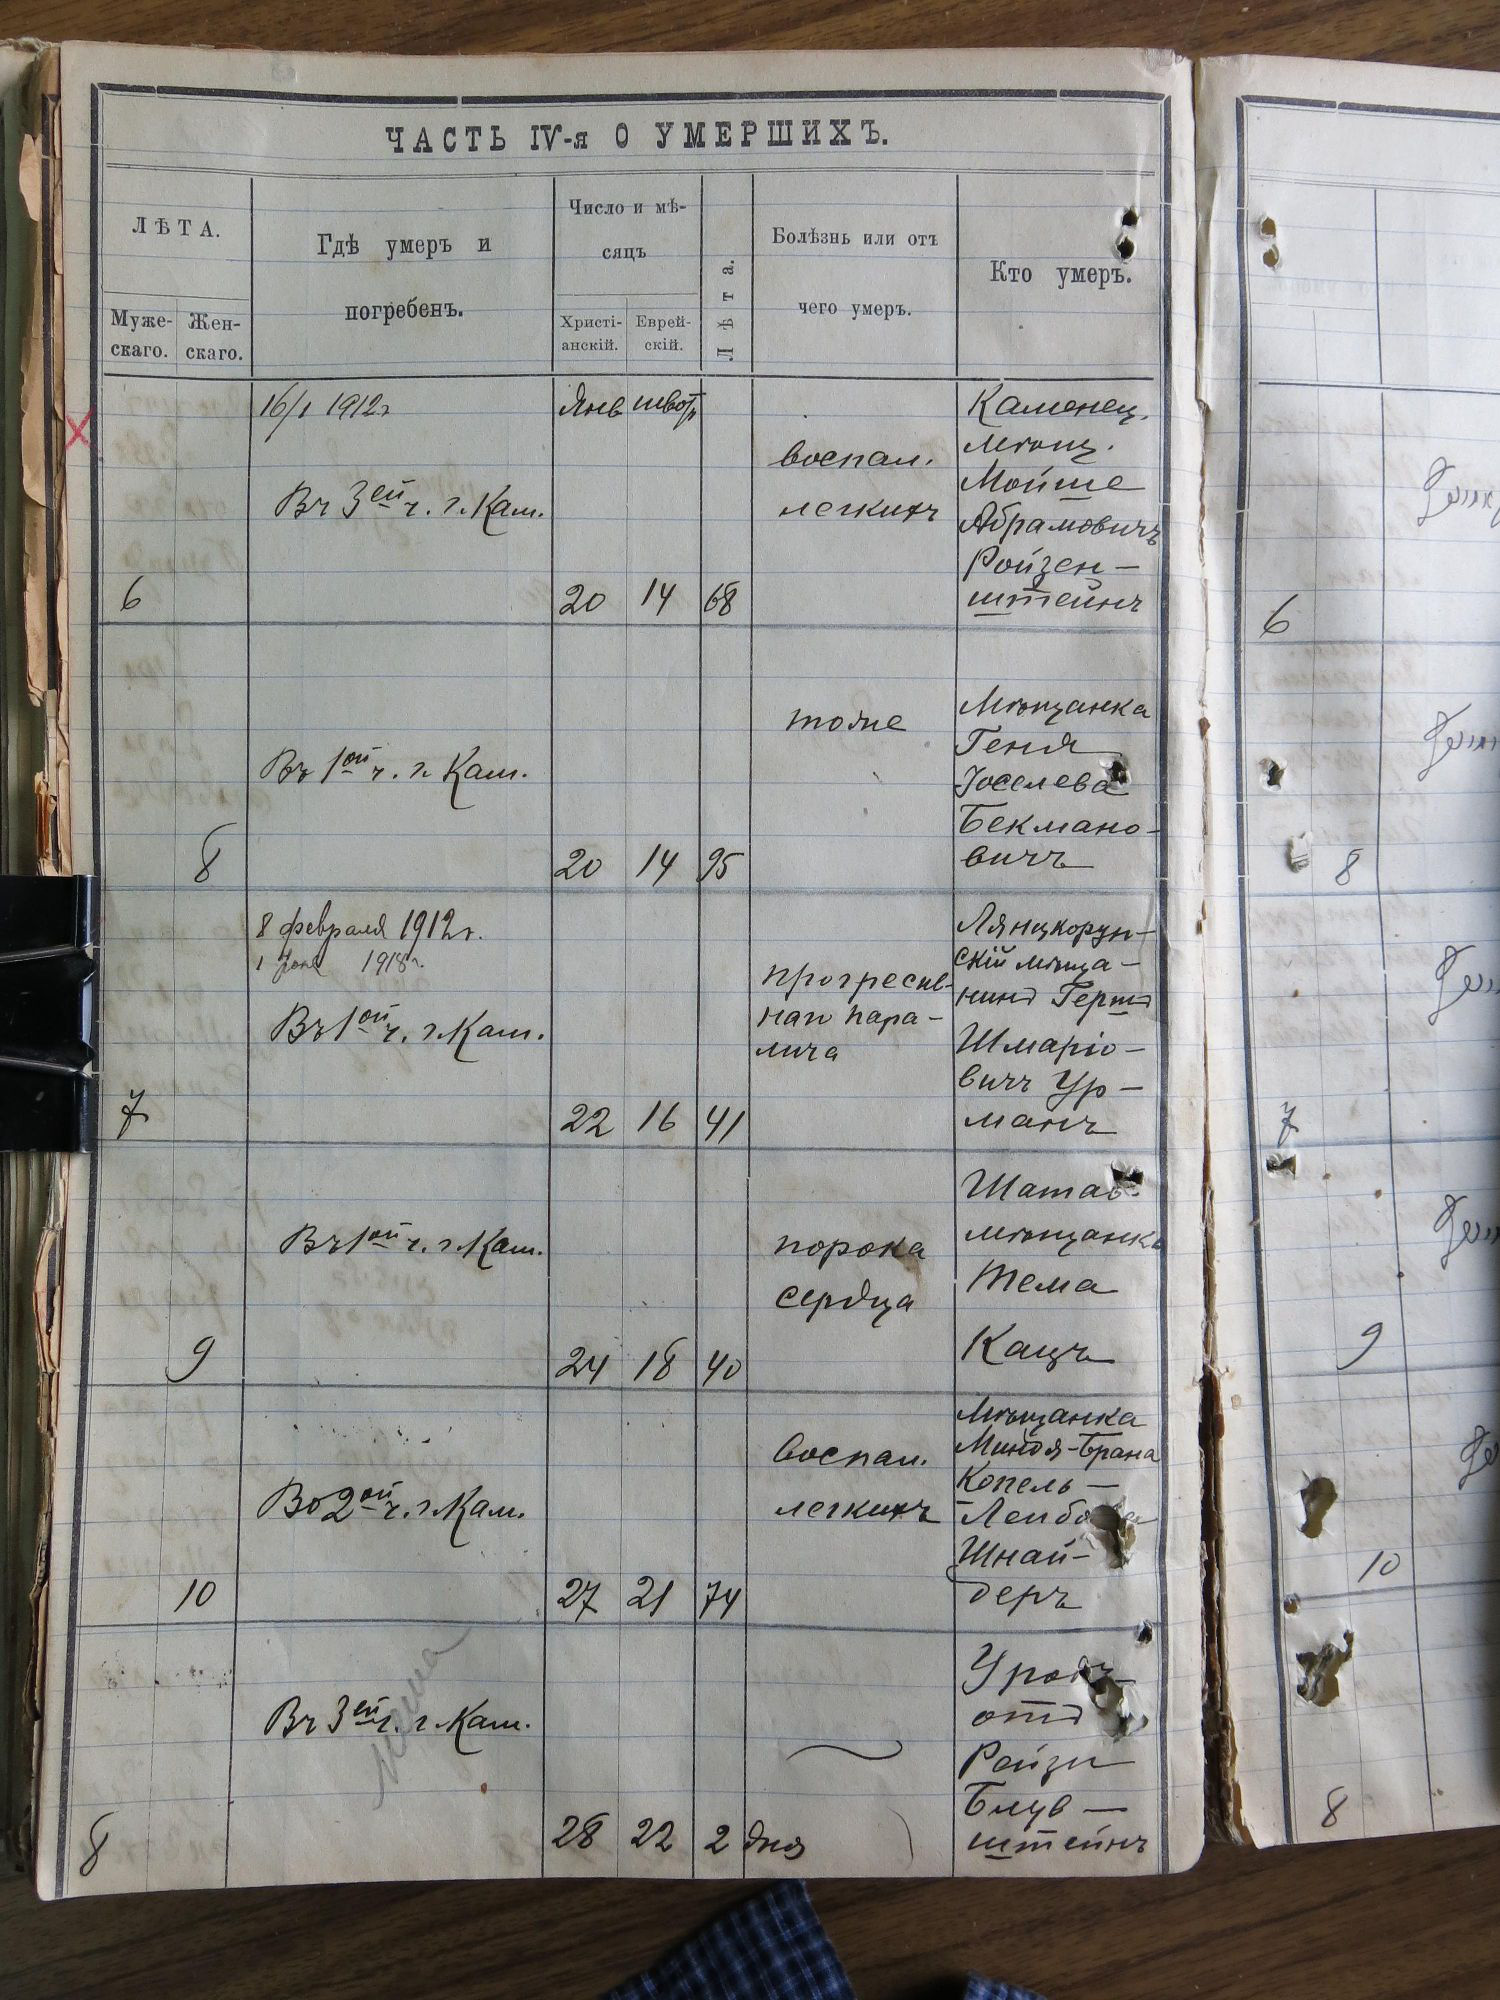 ЧАСТЬ IV-я О УМЕРШИХЪ.
ЛѢТА.
Муже-
скаго.
Жен-
скаго.
Гдѣ умеръ и
погребенъ.
Число и мѣ-
сяцъ
Христі-
анскій.
Еврей-
скій.
Лѣта.
Болѣзнь или отъ
чего умеръ.
Кто умеръ.
16/1 1912г
Янв
Въ 3ей ч. г. Кам.
воспал.
легкихъ
Каменец.
мѣщ.
Мойше
Абрамовичъ
Ройзен-
штейнъ
6
20 14 68
6
Въ 1ой ч. г. Кам.
тоже
Мѣщанка
Геня
Іоселева
Бекмано-
вичъ
8
20 14 95
8
8 февраля 1912г.
1918г.
Въ 1ой ч. г. Кам.
прогресив-
наго пара-
лича
Лянцкорун-
скій мѣща-
нинъ Герш
Шмаріо-
вичъ Ур-
манъ
7
22 16 41
7
Въ 1ой ч. г. Кам.
порока
сердца
Шатав.
мѣщанка
Тема
Кацъ
9
24 18 40
9
Во 2ой ч. г. Кам.
воспал.
легкихъ
Мѣщанка
Миндя-Брана
Копель-
Лейбова
Шнай-
деръ
10
27 21 74
10
Въ 3ей ч. г. Кам.
Уродъ
отъ
Рейзи
Блув-
штейнъ
8
28 22 2 дня
8